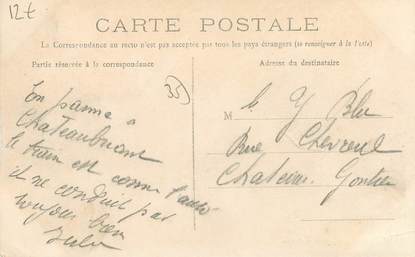 12€
CARTE POSTALE
La Correspondance au recto n'est pas acceptée pas tous les pays étrangers (se renseigner à la Poste)
Partie réservée à la correspondance
Adresse du destinataire
35
En panne à
Chateaubriant
le train est comme l'auto
il ne conduit pas
toujours bien
Jules
M
Rue Chevreul
Chateau-Gontier